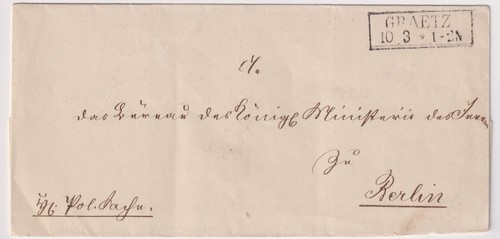 GRAETZ
10 3 * 1-2N
An
das Büreau des Königl Ministerii des Innern
Zu
Berlin
Pol. Sache.